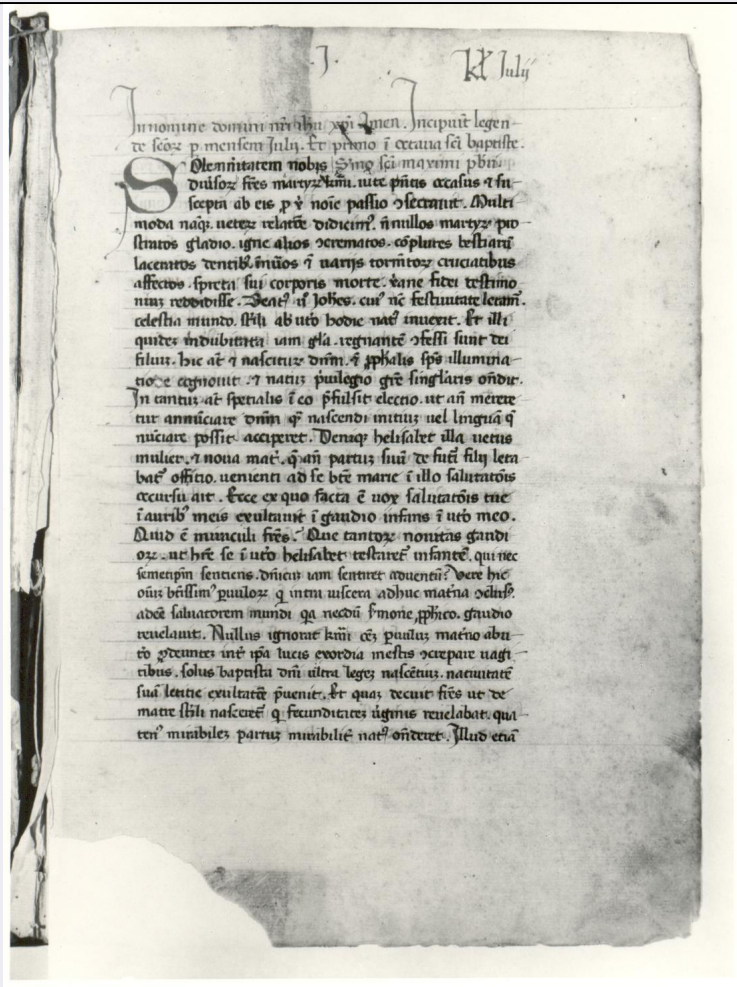 .I.
kł Iulij
In nomine domini nr̄i ih̄u xp̄i Amen. Incipiūt legen-
de scō℞ p̱ mensem Iulij. Et primo ī octaua sc̄i baptiste.
SOlemnitatem nobis Sm̄o sc̄i maximi
diuso℞ fr̄es marty℞ p̄ntis occasus ⁊ su
scepta ab eis ꝓ noīe passio ꝯsecrauit. Multi
moda naqꝫ uete℞ relatōe didicimꝰ. nōnullos marty℞ pro
stratos gladio. igne alios ꝯcrematos. cōplures bestiarū
laceratos dentibꝫ ⁊ uarijs tormēto℞ cruciatibus
affectos. spreta sui corporis morte. fidei testimo
niuꝫ reddidisse. Beatꝰ Joh̄es. cuiꝰ festiuitate
celestia mundo. ab ut̄o hodie natꝰ inuexit. Et illi
quideꝫ indubitata iam gl̄a. regnantē ꝯfessi sunt dei
filiuꝫ. hic at̄ ⁊ nascituꝝ dn̄m. ꝓph̄alis sp̄s illumina-
tione cognouit. ⁊ natuꝫ p̄uilegio singl̄aris ōndit.
In tantuꝫ at̄ spetialis ī eo p̄fulsit electio. ut an̄ merere
tur annūciare dn̄m nascendi initiuꝫ uel linguā
nūciare possit acciperet. Deniqꝫ helisabet illa uetus
mulier. ⁊ noua mat̄. an̄ partuꝫ suū de futi filij leta
bat̄ officio. uenienti ad se bt̄e marie ī illo salutatōis
occursu ait. Ecce ex quo facta ē uox salutatōis tue
ī auribꝰ meis exultauit ī gaudio infans ī ut̄o meo.
Quid ē fr̄es? Que tanto℞ nouitas gaudi
o℞. ut se ī ut̄o helisabet testaret̄ infantē. qui nec
semetip̄m sentiens. dn̄icuꝫ iam sentiret aduentū? Vere hic
oīuꝫ bt̄issimꝰ puulo℞ q̄ intra uiscera adhuc mat̄na
adeē saluatorem mundi qa necdū s̄mone ꝓph̄ico. gaudio
reuelauit. Nullus ignorat puuluꝫ mat̄no abu
t̄o ꝓdeunteꝫ int̄ ip̄a lucis exordia mestis ꝯcrepare uagi
tibus. solus baptista dn̄i ultra legeꝫ nascētiuꝫ. natiuitatē
suā letitie exultatōe p̄uenit. Et quaꝫ decuit fr̄es ut de
matre st̄ili nasceret̄ q̄ fecunditateꝫ ūginis reuelabat. qua
tenꝰ mirabileꝫ partuꝫ mirabilit̄ natꝰ on̄deret. Illud etiā